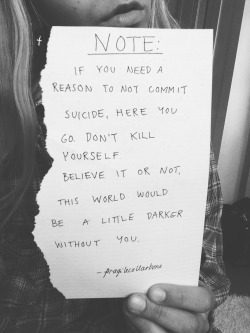 NOTE:
IF YOU NEED A
REASON TO NOT COMMIT
SUICIDE, HERE YOU
GO. DON'T KILL
YOURSELF
BELIEVE IT OR NOT,
THIS WORLD WOULD
BE A LITTLE DARKER
WITHOUT YOU.